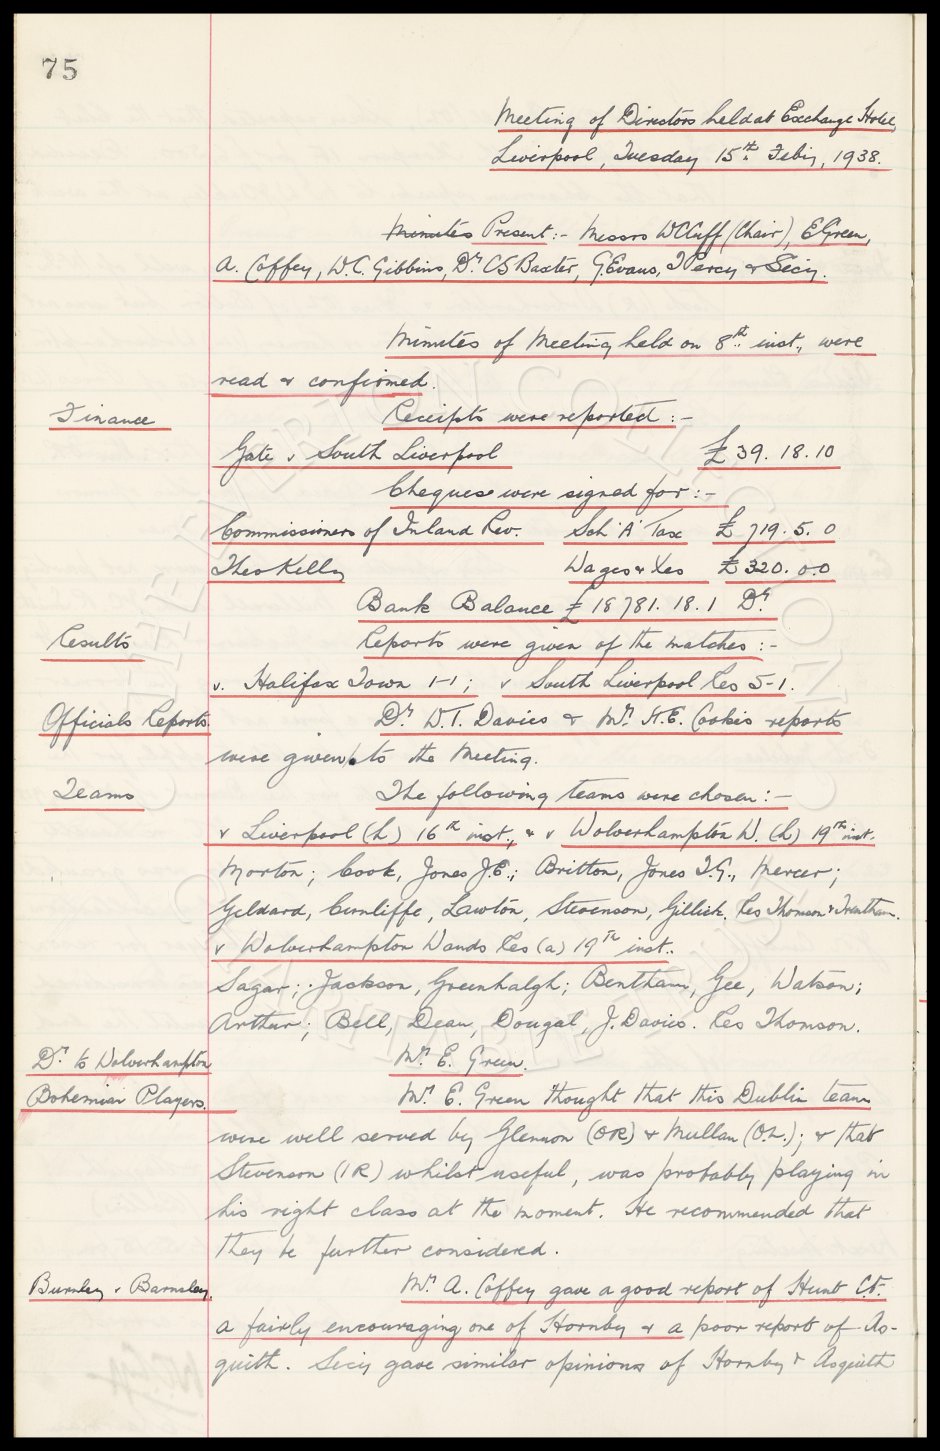 75
Meeting of Directors held at Exchange Hotel,
Liverpool, Tuesday 15th Feb'y, 1938.
Minutes Present:- Messrs W C Cuff (Chair), E Green,
A. Coffey, W.C. Gibbins, Dr. C S Baxter, G Evans, T Percy & Secy.
Minutes of Meeting held on 8th inst., were
read & confirmed.
Finance
Receipts were reported:-
Gate v South Liverpool £39. 18. 10
Cheques were signed for:-
Commissioners of Inland Rev. Sch 'A' Tax £719. 5. 0
Theo Kelly Wages & Xes £320. 0.0
Bank Balance £18781. 18. 1 Dr.
Results
Reports were given of the matches:-
v. Halifax Town 1-1; v South Liverpool Res 5-1.
Officials Reports
Dr. W.T. Davies & Mr. H.E. Cooke's reports
were given to the Meeting.
Teams
The following teams were chosen:-
v Liverpool (h) 16th inst., & v Wolverhampton W. (h) 19th inst.
Morton; Cook, Jones J.E.; Britton, Jones T.G., Mercer;
Geldard, Cunliffe, Lawton, Stevenson, Gillick. Res Thomson & Trentham.
v Wolverhampton Wands Res (a) 19th inst.
Sagar; Jackson, Greenhalgh; Bentham, Gee, Watson;
Arthur; Bell, Dean, Dougal, J. Davies. Res Thomson.
Dr. to Wolverhampton
Mr. E. Green.
Bohemian Players.
Mr. E. Green thought that this Dublin team
were well served by Glennon (OR) & Mullan (O.L.); & that
Stevenson (IR) whilst useful, was probably playing in
his right class at the moment. He recommended that
they be further considered.
Burnley v Barnsley.
Mr. A. Coffey gave a good report of Hunt C.F.
a fairly encouraging one of Hornby & a poor report of As-
quith. Secy gave similar opinions of Hornby & Asquith
THE EVERTON COLLECTION
CHARITABLE TRUST